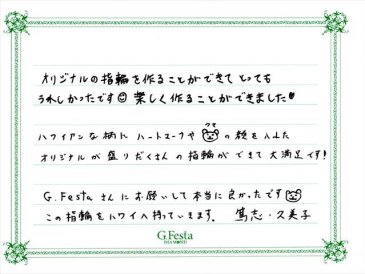 オリジナルの指輪を作ることができて とっても
うれしかったです 楽しく作ることができました!
クマ
ハワイアンな柄に ハートマークや の顔を入れた
オリジナルが盛りだくさんの指輪ができて大満足です!
G.Festa さんにお願いして本当に良かったです
この指輪をハワイへ持っていきます。 篤志・久美子
G.Festa
DIAMOND